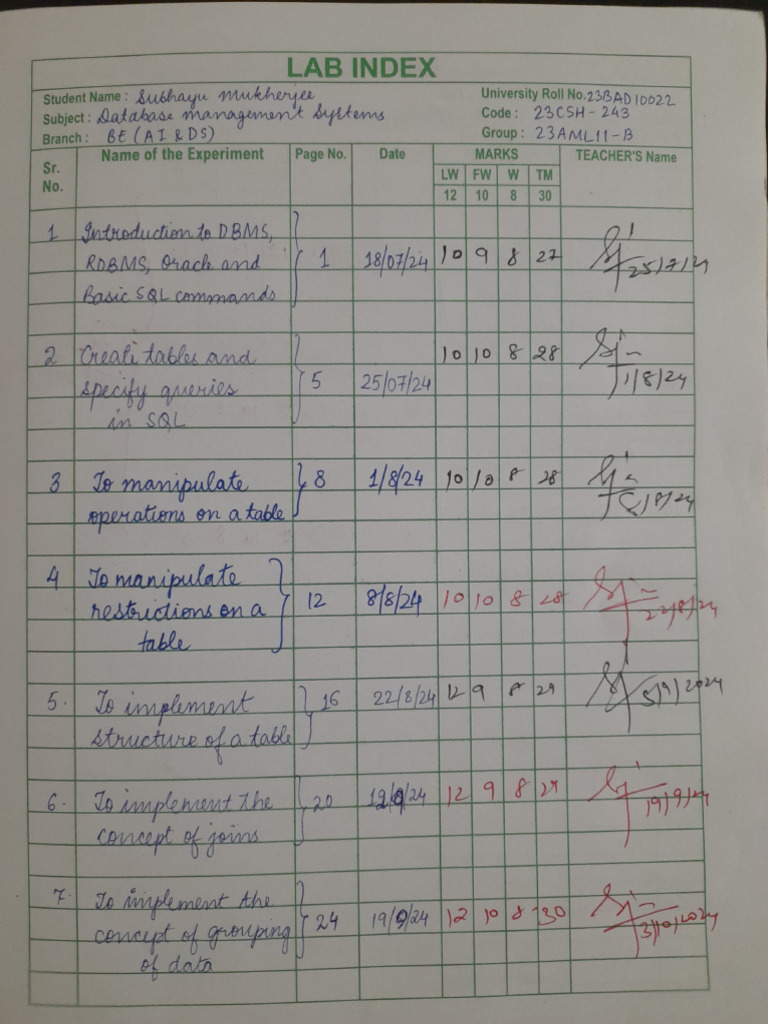 LAB INDEX
Student Name : Subhayu Mukherjee
University Roll No. 23BAD10022
Subject : Database Management Systems
Code : 23CSH-243
Branch : BE (AI & DS)
Group : 23AML11-B
Sr. No. Name of the Experiment Page No. Date MARKS TEACHER'S Name
LW FW W TM
12 10 8 30
1 Introduction to DBMS,
RDBMS, Oracle and 1 18/07/24 10 9 8 27
25/7/24
Basic SQL commands
2 Create tables and 10 10 8 28
specify queries 5 25/07/24 1/8/24
in SQL
3 To manipulate 8 1/8/24 10 10 8 28
operations on a table 8/8/24
4 To manipulate
restrictions on a 12 8/8/24 10 10 8 28
22/8/24
table
5. To implement 16 22/8/24 12 9 8 29
5/9/2024
structure of a table
6. To implement the 20 12/9/24 12 9 8 29
19/9/24
concept of joins
7. To implement the
concept of grouping 24 19/9/24 12 10 8 30
3/10/2024
of data